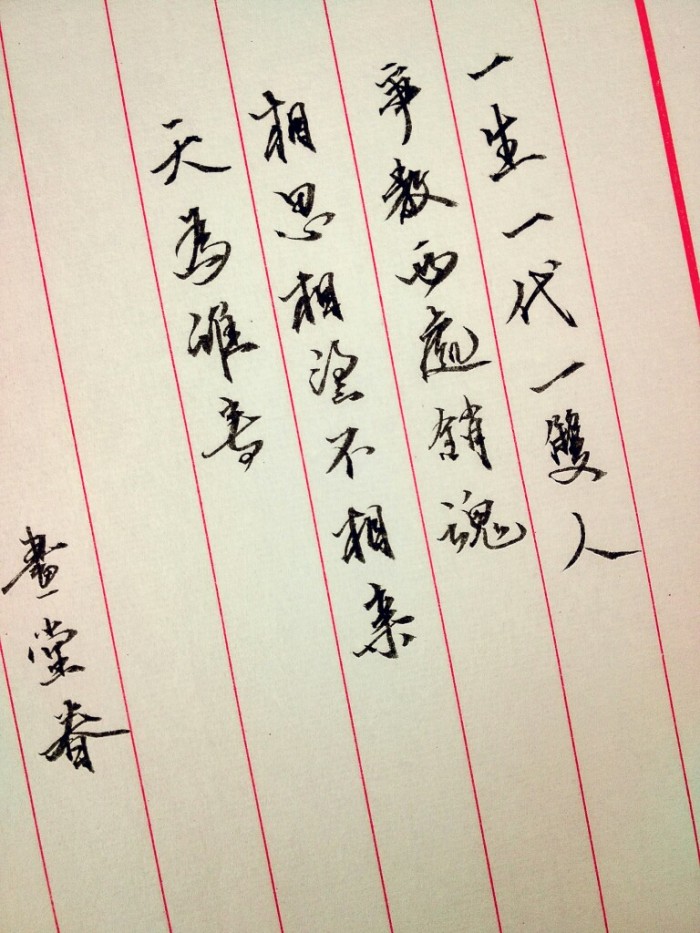 一生一代一雙人
爭教兩處銷魂
相思相望不相親
天為誰春
畫堂春